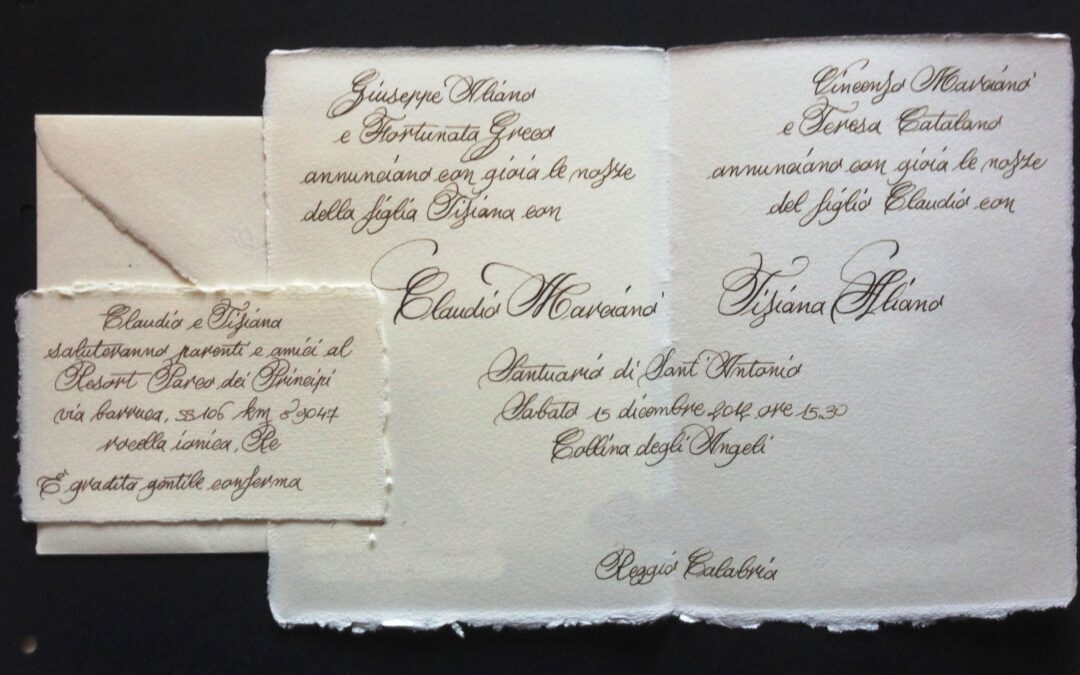 Giuseppe Aliano
e Fortunata Greco
annunciano con gioia le nozze
della figlia Tiziana con
Vincenzo Marcianò
e Teresa Catalano
annunciano con gioia le nozze
del figlio Claudio con
Claudio Marcianò
Tiziana Aliano
Santuario di Sant'Antonio
Sabato 15 dicembre 2012, ore 15.30
Collina degli Angeli
Reggio Calabria
Claudio e Tiziana
saluteranno parenti e amici al
Resort Parco dei Principi
via barruca, SS106 km
rocella ionica, Rc
È gradita gentile conferma